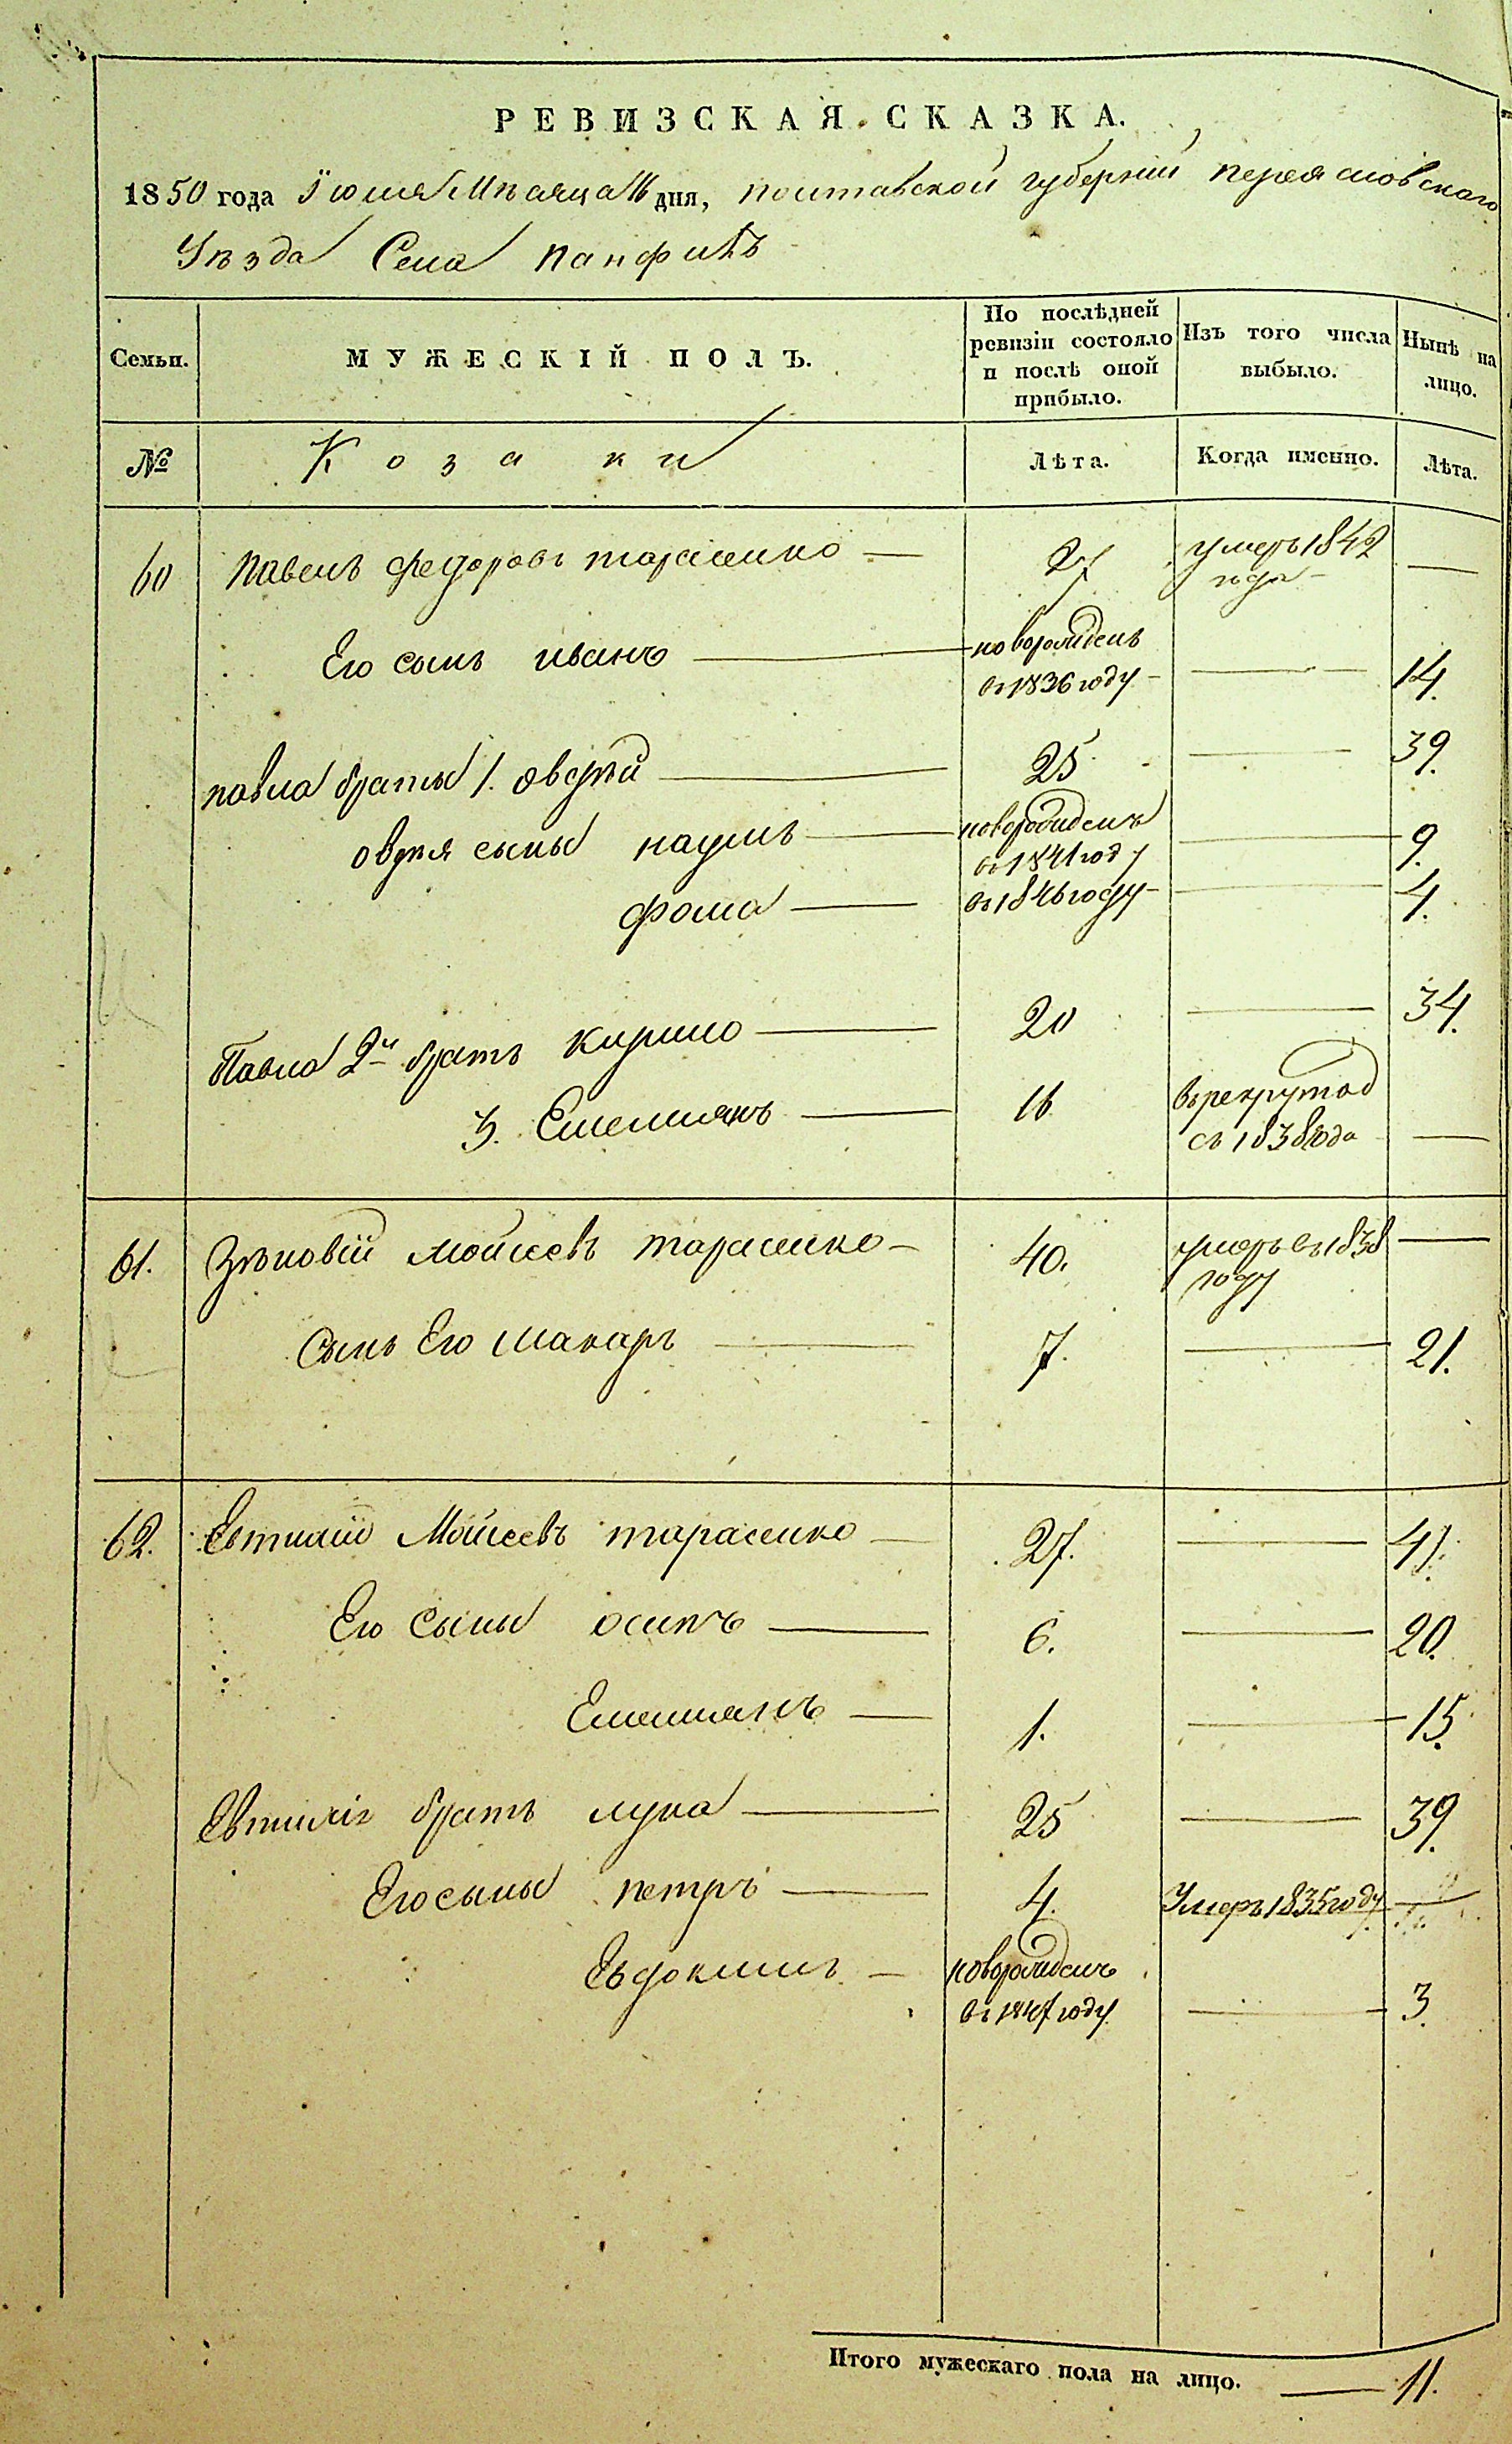 РЕВИЗСКАЯ СКАЗКА.
1850 года Іюля Мѣсяца 16 дня, полтавской губерніи переясловскаго
Уѣзда Села панфилъ
Семьи.
МУЖЕСКІЙ ПОЛЪ.
По послѣдней ревизіи состояло и послѣ оной прибыло.
Изъ того числа выбыло.
Нынѣ на лицо.
№
Козаки
Лѣта.
Когда именно.
Лѣта.
60 павелъ федоровъ тарасенко — 27 умеръ 1842 года —
Его сынъ иванъ — новорожденъ въ 1836 году — — 14.
павла браты 1. оверкій — 25 — 39.
оверкія сыны наумъ — новорожденъ въ 1841 году — 9.
фома — въ 1846 году — — 4.
Павла 2й братъ кирило — 20 — 34.
3. Емелиянъ — 16 въ рекрутах съ 1838 года —
61. Зѣновій мойсеевъ тарасенко — 40. умеръ въ 1838 году —
Сынъ Его макаръ — 7. — 21.
62. Евтихій Мойсеевъ тарасенко — 27. — 41.
Его Сыны осипъ — 6. — 20.
Емелиянъ — 1. — 15.
Евтихія братъ лука — 25 — 39.
Его сыны петръ — 4. Умеръ 1835 году —
Евдокимъ — новорожденъ въ 1847 году — 3.
Итого мужескаго пола на лицо. — 11.